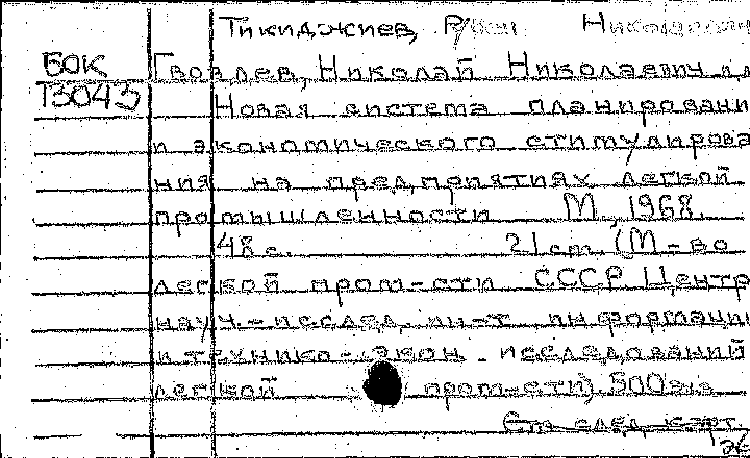 Тикиджиев, Николаевич
БОК Гвоздев, Николай Николаевич и д
Т3043 Новая система планировани
и экономического стимулирова
ния на предприятиях легкой
промышленности М, 1968.
48 с. 21 cm. (М-во
легкой пром-сти СССР. Центр
науч.-исслед. ин-т информации
и технико-экон. исследований
легкой пром-сти). 500 экз
См. след. карт.